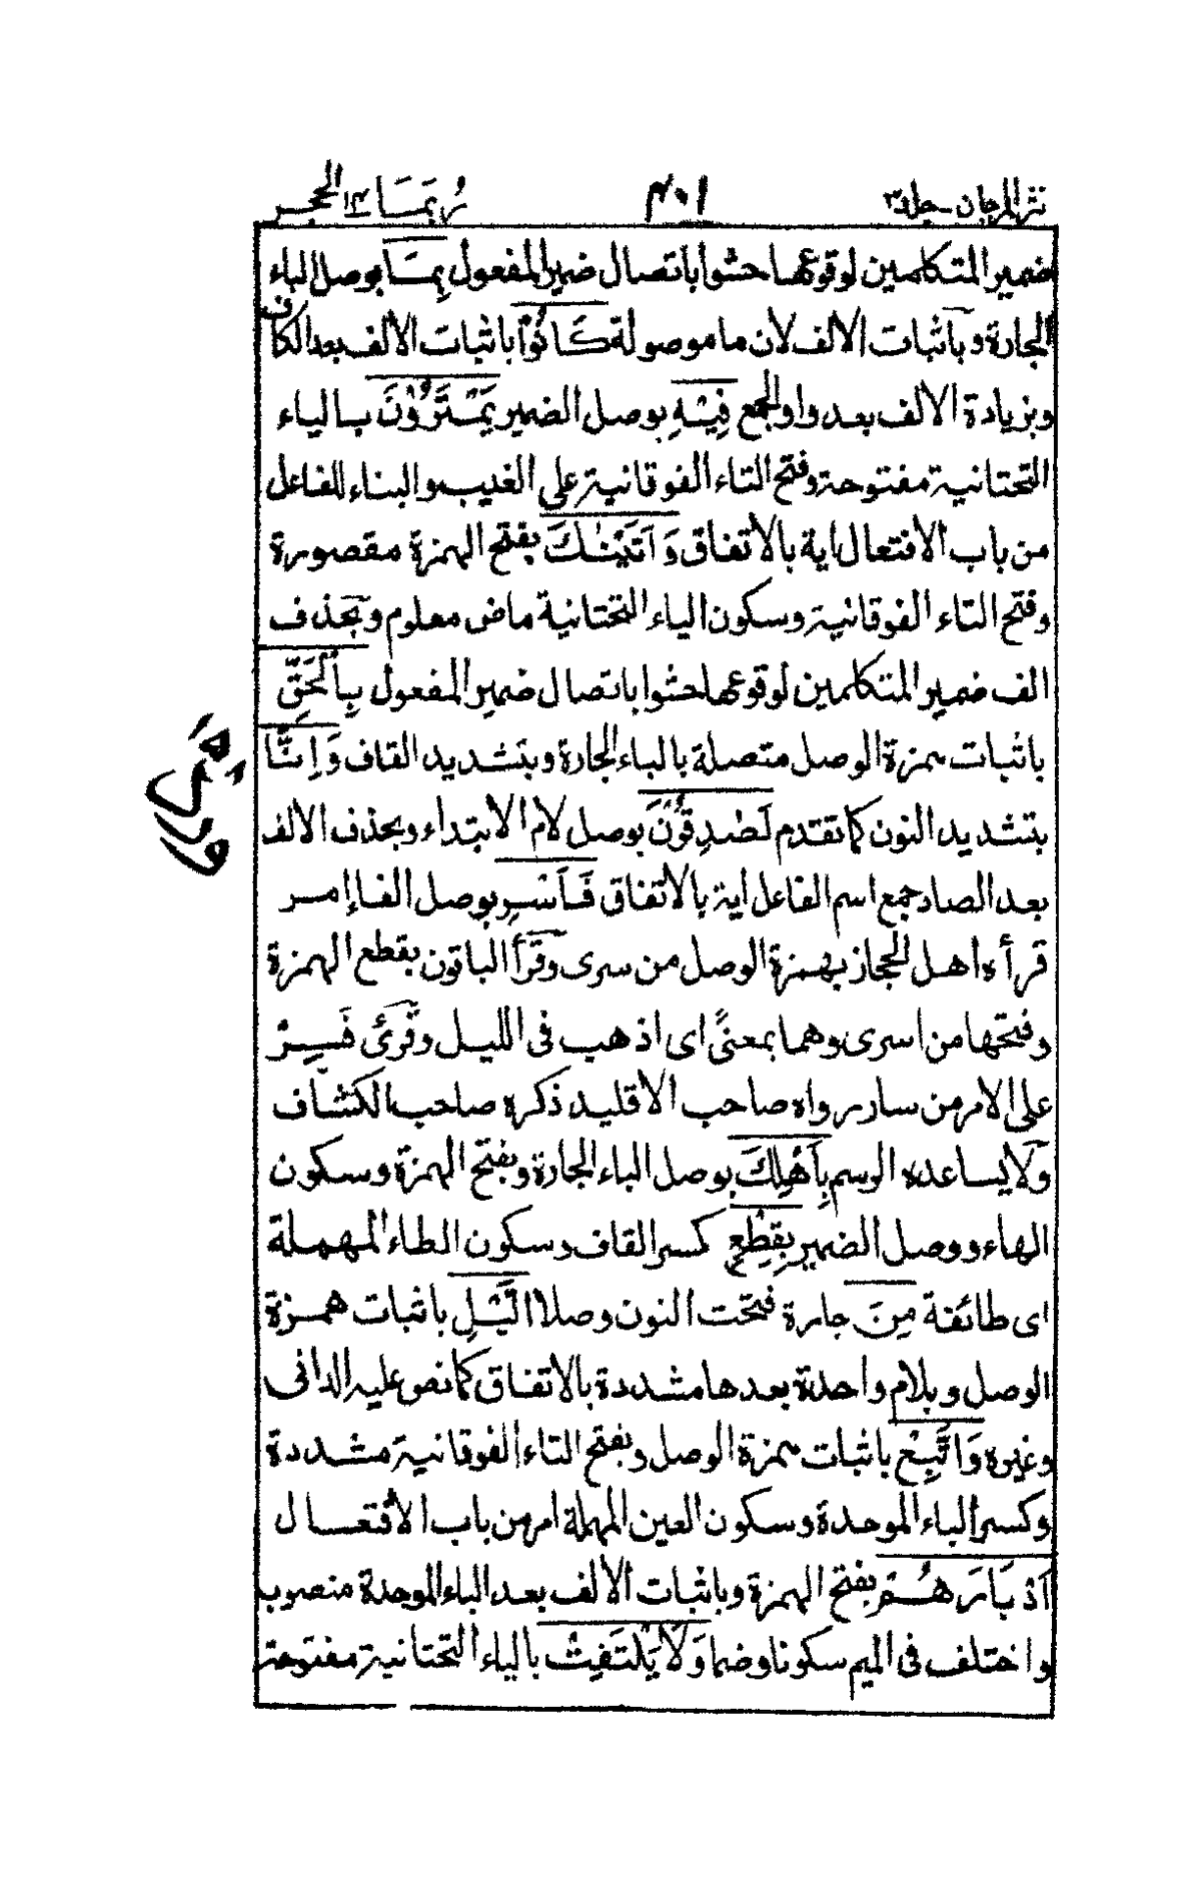 نثر المرجان جلد٣
٤٠١
رُبَمَا ١٤ الحجر
ضمير المتكلمين لوقوعها حشوا باتصال ضمير المفعول بِمَا بوصل الباء
الجارة وباثبات الالف لان ما موصولة كَانُوْا باثبات الالف بعد الكاف
وبزيادة الالف بعد واو الجمع فِيْهِ بوصل الضمير يَمْتَرُوْنَ بالياء
التحتانية مفتوحة وفتح التاء الفوقانية على الغيب والبناء للفاعل
من باب الافتعال اية بالاتفاق وَاَتَيْنٰكَ بفتح الهمزة مقصورة
وفتح التاء الفوقانية وسكون الياء التحتانية ماض معلوم وبحذف
الف ضمير المتكلمين لوقوعها حشوا باتصال ضمير المفعول بِالْحَقِّ
باثبات همزة الوصل متصلة بالباء الجارة وبتشديد القاف وَاِنَّا
بتشديد النون كما تقدم لَصٰدِقُوْنَ بوصل لام الابتداء وبحذف الالف
بعد الصاد جمع اسم الفاعل اية بالاتفاق فَاَسْرِ بوصل الفاء امر
قرأه اهل الحجاز بهمزة الوصل من سرى وقرأ الباقون بقطع الهمزة
وفتحها من اسرى وهما بمعنًى اى اذهب فى الليل وقُرِئَ فَسِرْ
على الامر من سار رواه صاحب الاقليد ذكره صاحب الكشاف
ولا يساعده الرسم بِاَهْلِكَ بوصل الباء الجارة وبفتح الهمزة وسكون
الهاء ووصل الضمير بِقِطْعٍ كسر القاف وسكون الطاء المهملة
اى طائفة مِنَ جارة فتحت النون وصلا الَّيْلِ باثبات همزة
الوصل وبلام واحدة بعدها مشددة بالاتفاق كما نص عليه الدانى
وغيره وَاتَّبِعْ باثبات همزة الوصل وبفتح التاء الفوقانية مشددة
وكسر الباء الموحدة وسكون العين المهملة امر من باب الافتعال
اَدْبَارَهُمْ بفتح الهمزة وباثبات الالف بعد الباء الموحدة منصوب
واختلف فى الميم سكونا وضما وَلَا يَلْتَفِتْ بالياء التحتانية مفتوحة